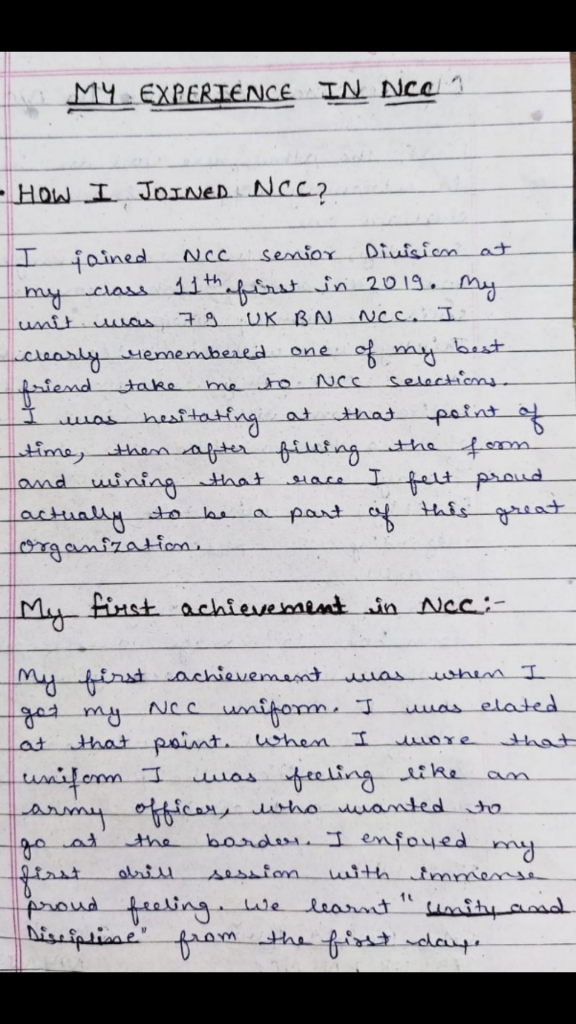 MY EXPERIENCE IN NCC
HOW I JOINED NCC?
I joined NCC senior Division at
my class 11th first in 2019. My
unit was 79 UK BN NCC. I
clearly remembered one of my best
friend take me to NCC selections.
I was hesitating at that point of
time, then after filling the form
and wining that race I felt proud
actually to be a part of this great
organization.
My first achievement in NCC:-
My first achievement was when I
got my NCC uniform. I was elated
at that point. When I wore that
uniform I was feeling like an
army officer, who wanted to
go at the border. I enjoyed my
first drill session with immense
proud feeling. We learnt "Unity and
Discipline" from the first day.